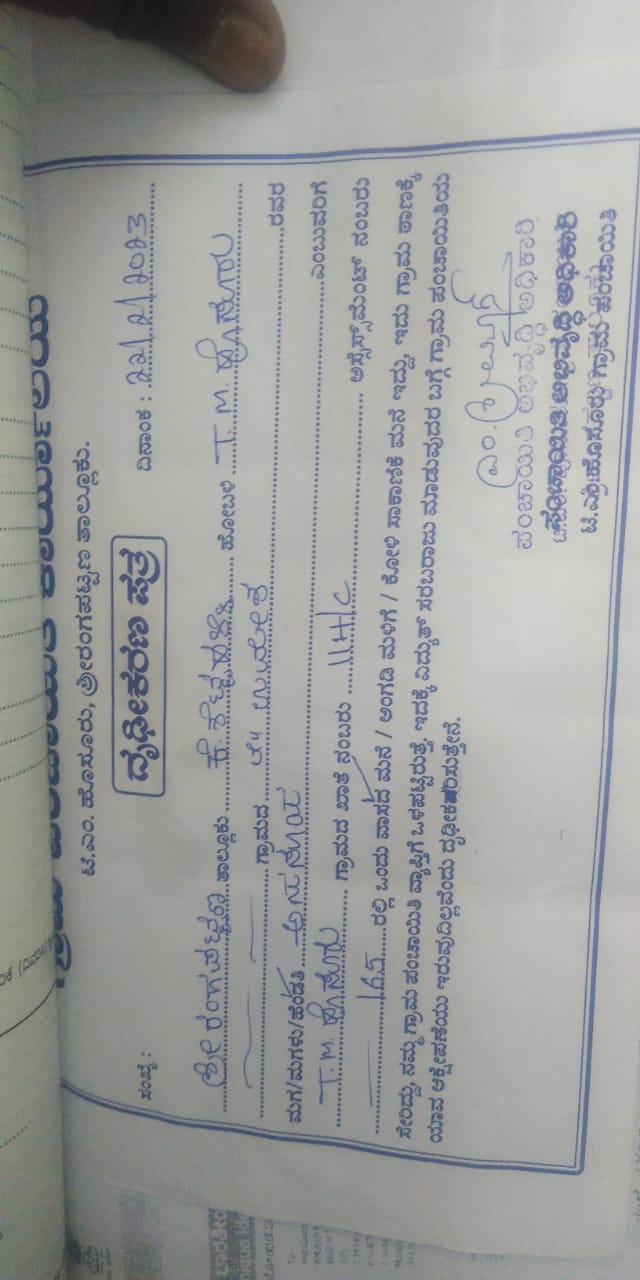 ಗ್ರಾಮ ಪಂಚಾಯಿತಿ ಕಾರ್ಯಾಲಯ
ಟಿ.ಎಂ. ಹೊಸೂರು, ಶ್ರೀರಂಗಪಟ್ಟಣ ತಾಲ್ಲೂಕು.
ದೃಢೀಕರಣ ಪತ್ರ
ಸಂಖ್ಯೆ : ದಿನಾಂಕ : 22/2/2023
ಶ್ರೀರಂಗಪಟ್ಟಣ ತಾಲ್ಲೂಕು ಕೆ.ಶೆಟ್ಟಹಳ್ಳಿ ಹೋಬಳಿ T.M. ಹೊಸೂರು
ಗ್ರಾಮದ ಉಮೇಶ ರವರ
ಮಗ/ಮಗಳು/ಹೆಂಡತಿ ಎಂಬುವರಿಗೆ
T.M. ಹೊಸೂರು ಗ್ರಾಮದ ಖಾತೆ ನಂಬರು 11H/C ಅಸೆಸ್ಸ್‌ಮೆಂಟ್ ನಂಬರು
165 ರಲ್ಲಿ ಒಂದು ವಾಸದ ಮನೆ / ಅಂಗಡಿ ಮಳಿಗೆ / ಕೋಳಿ ಸಾಕಾಣಿಕೆ ಮನೆ ಇದ್ದು, ಇದು ಗ್ರಾಮ ಠಾಣಕ್ಕೆ
ಸೇರಿದ್ದು, ನಮ್ಮ ಗ್ರಾಮ ಪಂಚಾಯಿತಿ ವ್ಯಾಪ್ತಿಗೆ ಒಳಪಟ್ಟಿರುತ್ತೆ. ಇದಕ್ಕೆ ವಿದ್ಯುತ್ ಸರಬರಾಜು ಮಾಡುವುದರ ಬಗ್ಗೆ ಗ್ರಾಮ ಪಂಚಾಯಿತಿಯ
ಯಾವ ಆಕ್ಷೇಪಣೆಯು ಇರುವುದಿಲ್ಲವೆಂದು ದೃಢೀಕರಿಸುತ್ತೇನೆ.
ಪಂಚಾಯಿತಿ ಅಭಿವೃದ್ಧಿ ಅಧಿಕಾರಿ
ಪಂಚಾಯಿತಿ ಅಭಿವೃದ್ಧಿ ಅಧಿಕಾರಿ
ಟಿ.ಎಂ.ಹೊಸೂರು ಗ್ರಾಮ ಪಂಚಾಯಿತಿ